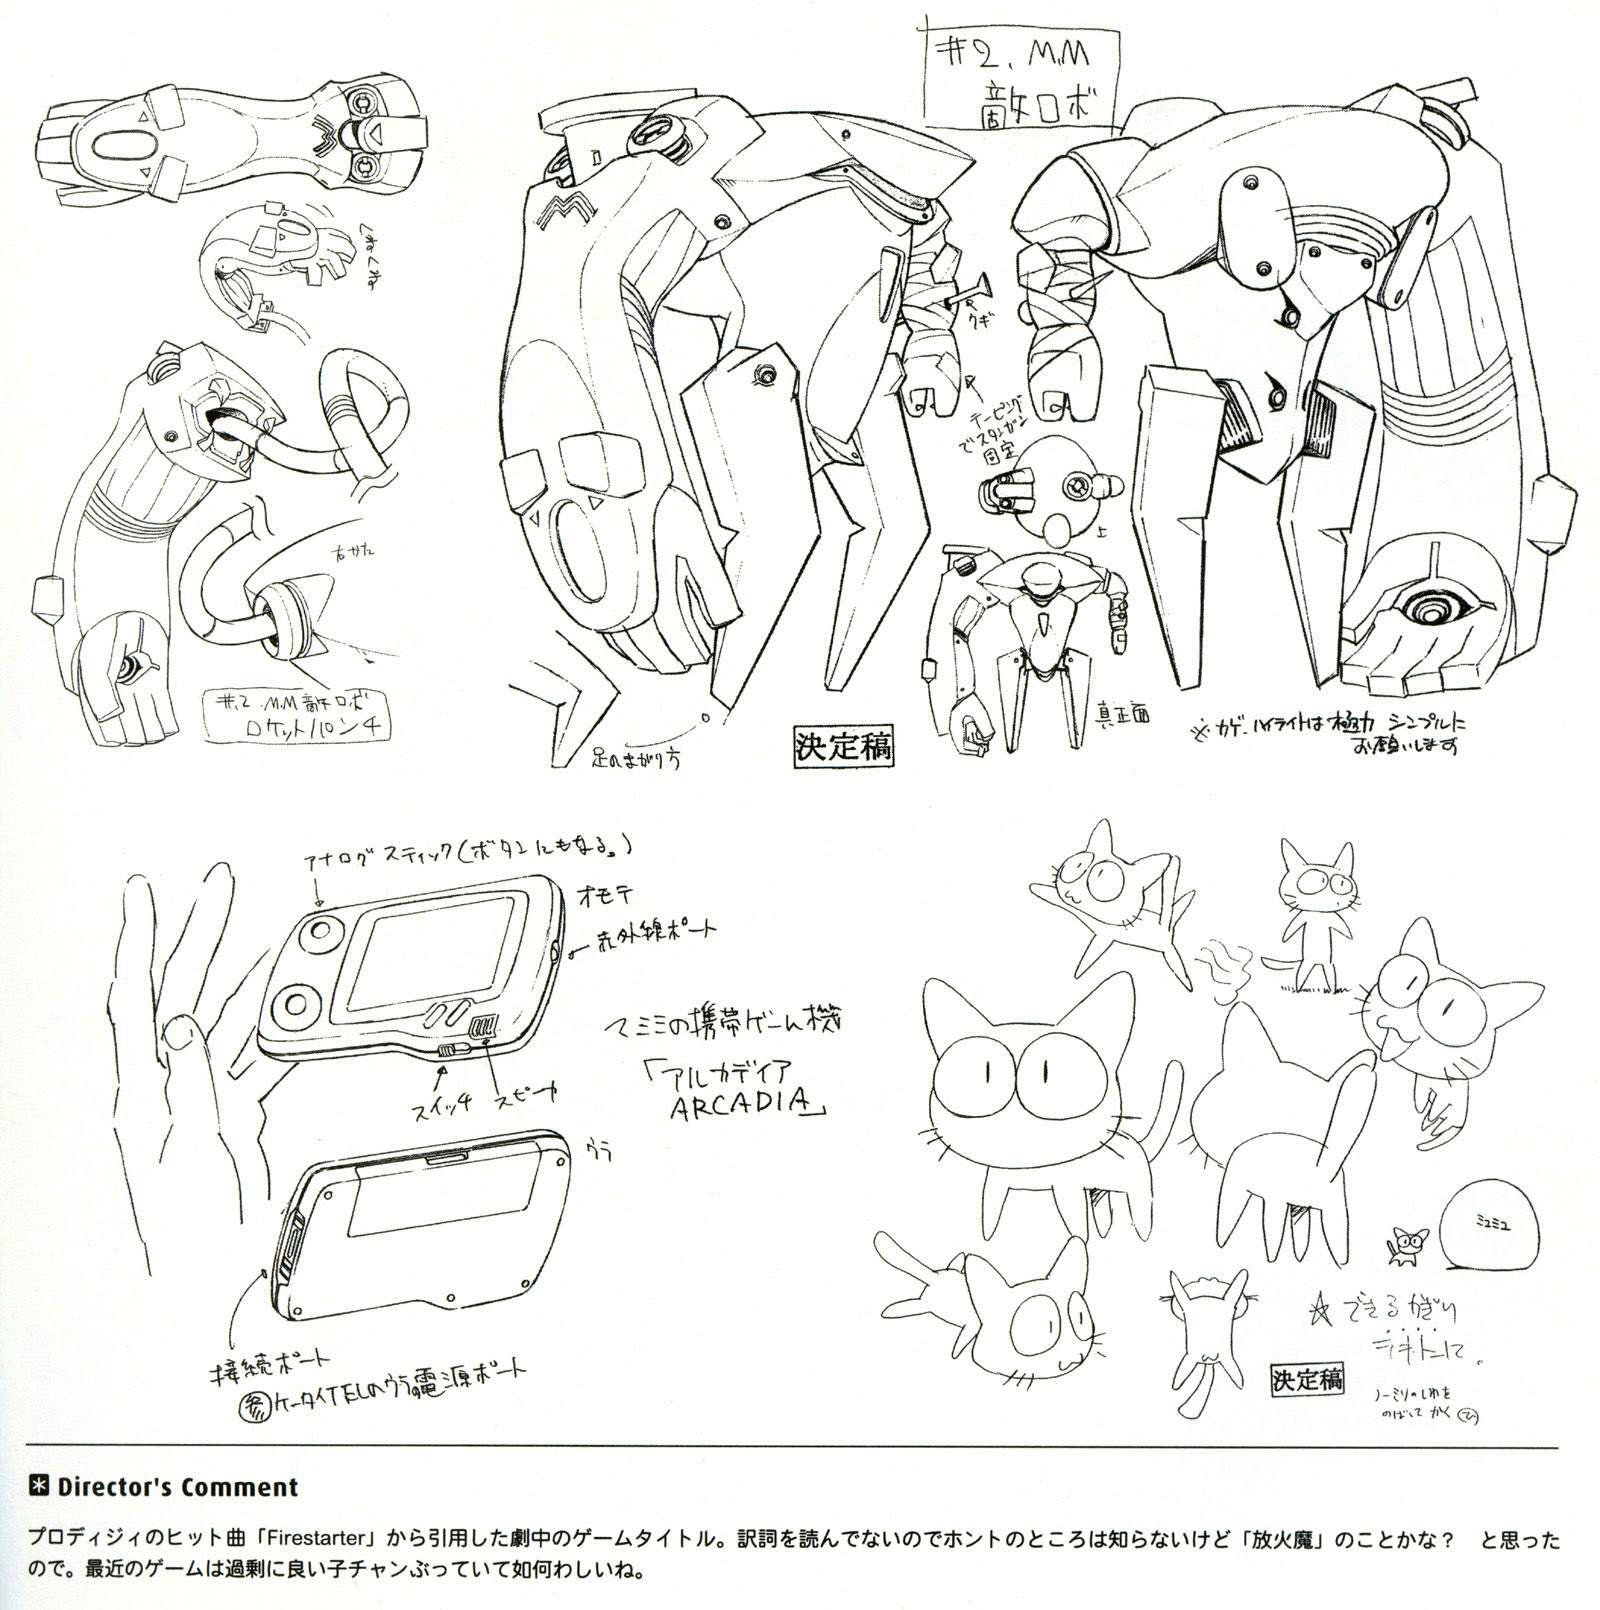 #2. M.M
敵ロボ
くねくね
クギ
テーピング
でスタンガン
固定
上
右かた
#.2 .M.M 敵ロボ
ロケットパンチ
足のまがり方
決定稿
真正面
※カゲ、ハイライトは極力 シンプルに
お願いします
アナログスティック(ボタンにもなる。)
オモテ
赤外線ポート
マミミの携帯ゲーム機
「アルカディア
ARCADIA」
スイッチ
スピーカ
ウラ
接続ポート
参 ケータイTELのウラの電源ポート
ミュミュ
☆ できるかぎり
テキトーにて。
決定稿
のばして かく
Director's Comment
プロディジィのヒット曲「Firestarter」から引用した劇中のゲームタイトル。訳詞を読んでないのでホントのところは知らないけど「放火魔」のことかな？ と思った
ので。最近のゲームは過剰に良い子チャンぶっていて如何わしいね。